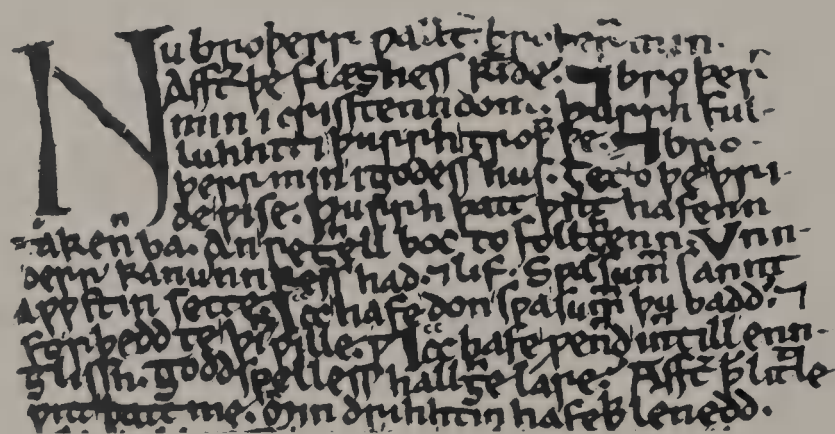 Nu broþerr ƿallt̄. broþerr min.
Afft̄ þe flæshess kinde. ⁊ broþerr
min i crisstenndom. þurrh ful-
luhht ⁊ þurrh troƿƿþe. ⁊ bro-
þerr min i godess hus. ȝet o þe þri-
de ƿise. þurrh þatt ƿitt hafenn
takenn ba. An reȝhell boc to follȝhenn. Unn-
derr kanunnkess had. ⁊ lif. Sƿa summ sannt
Aƿƿstin sette. Icc hafe don sƿa summ þu badd. ⁊
forþedd te þin ƿille. Icc hafe ƿennd inntill enn-
glissh. goddspelless hallȝhe lare. Afft̄ þ̄ little
ƿitt þatt me. Min drihhtin hafeþþ lenedd.